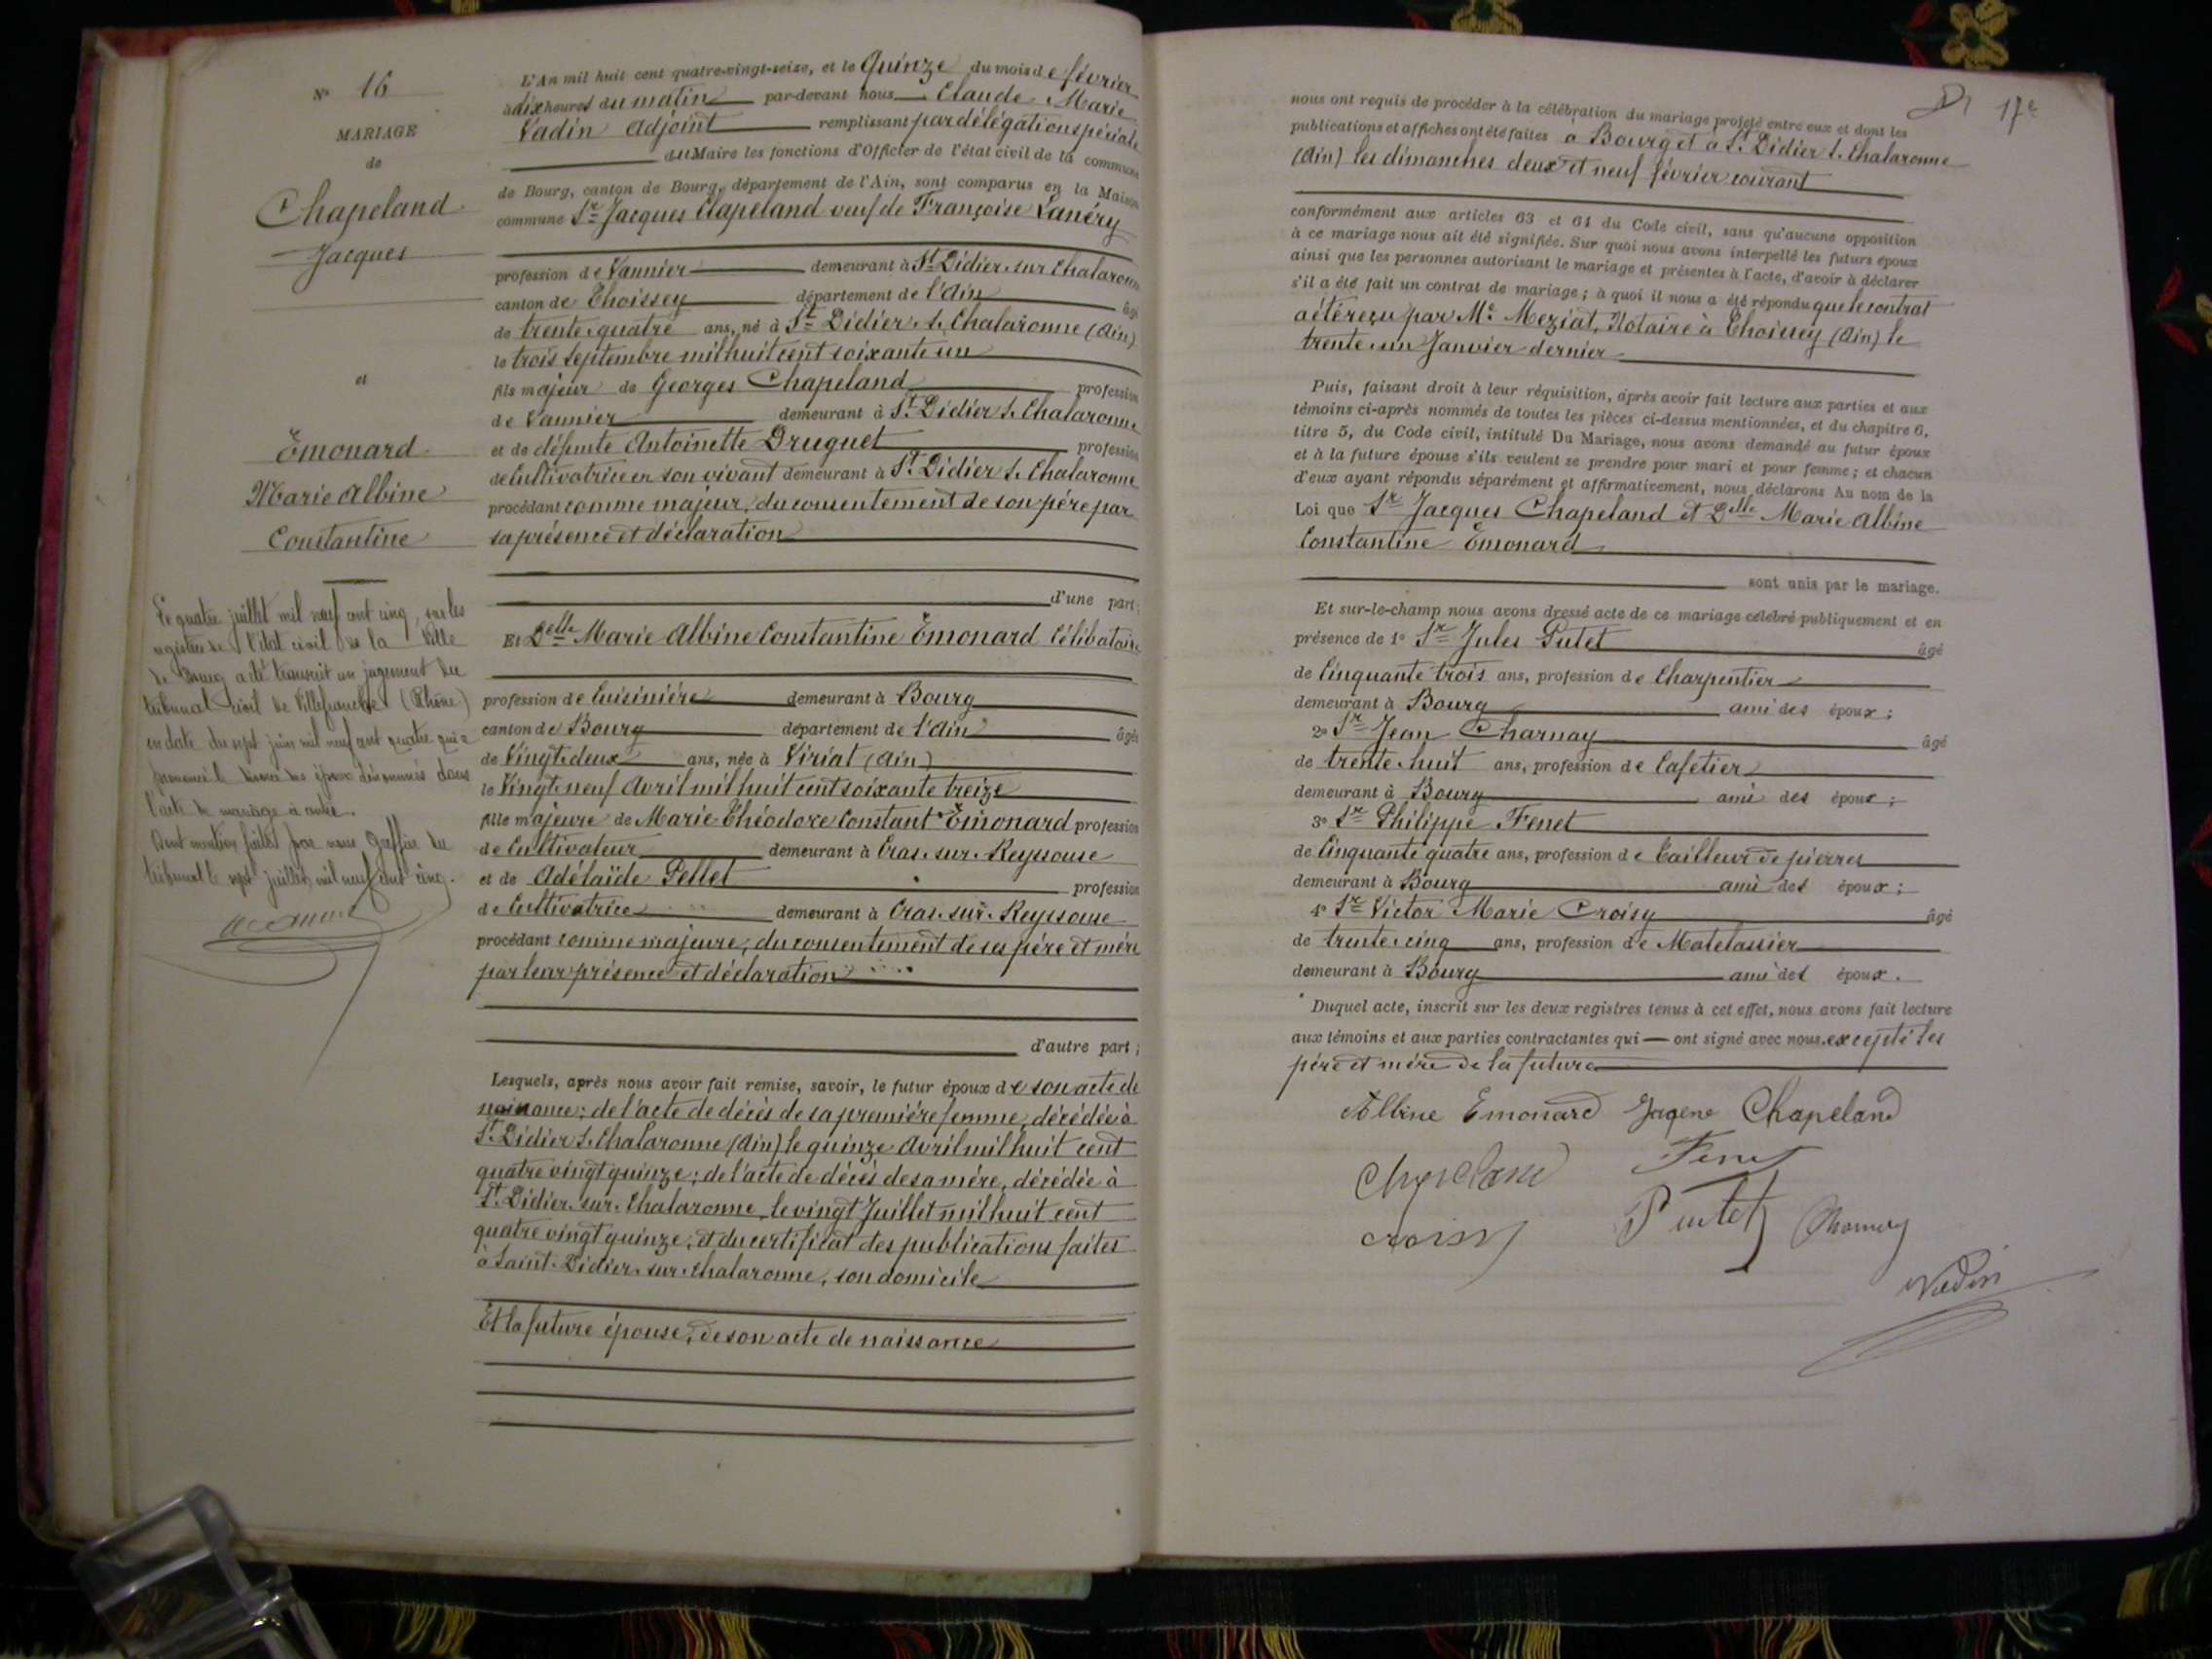 N° 16
MARIAGE
de
Chapeland
Jacques
et
Émonard
Marie Albine
Constantine
Le quatre juillet mil neuf cent cinq, sur les
registres de l'état civil de la Ville
de Bourg a été transcrit un jugement du
tribunal civil de Villefranche (Rhône)
en date du sept juin mil neuf cent quatre qui a
prononcé le divorce des époux dénommés dans
l'acte de mariage ci-contre.
Dont mention faite par nous Greffier du
tribunal le sept juillet mil neuf cent cinq.
L'An mil huit cent quatre-vingt-seize, et le Quinze du mois de février
à dix heures du matin par-devant nous Claude Marie
Vadin Adjoint remplissant par délégation spéciale
du Maire les fonctions d'Officier de l'état civil de la commune
de Bourg, canton de Bourg, département de l'Ain, sont comparus en la Maison
commune Sr Jacques Chapeland veuf de Françoise Lanéry
profession de Vannier demeurant à St Didier sur Chalaronne
canton de Thoissey département de l'Ain âgé
de trente quatre ans, né à St Didier s. Chalaronne (Ain)
le trois Septembre mil huit cent soixante un
fils majeur de Georges Chapeland profession
de Vannier demeurant à St Didier s. Chalaronne
et de défunte Antoinette Druguet profession
de Cultivatrice en son vivant demeurant à St Didier s. Chalaronne
procédant comme majeur, du consentement de son père par
sa présence et déclaration
d'une part;
Et Delle Marie Albine Constantine Émonard Célibataire
profession de Cuisinière demeurant à Bourg
canton de Bourg département de l'Ain âgée
de Vingt deux ans, née à Viriat (Ain)
le Vingt neuf Avril mil huit cent soixante treize
fille majeure de Marie Théodore Constant Émonard profession
de Cultivateur demeurant à Cras-sur-Reyssouse
et de Adélaïde Pellet profession
de Cultivatrice demeurant à Cras-sur-Reyssouse
procédant comme majeure, du consentement de ses père et mère
par leur présence et déclaration
d'autre part;
Lesquels, après nous avoir fait remise, savoir, le futur époux de son acte de
naissance; de l'acte de décès de sa première femme, décédée à
St Didier s. Chalaronne (Ain) le quinze Avril mil huit cent
quatre vingt quinze; de l'acte de décès de sa mère, décédée à
St Didier-sur-Chalaronne, le vingt Juillet mil huit cent
quatre vingt quinze, et du certificat des publications faites
à Saint-Didier-sur-Chalaronne, son domicile
Et la future épouse, de son acte de naissance
17e
nous ont requis de procéder à la célébration du mariage projeté entre eux et dont les
publications et affiches ont été faites à Bourg et à St Didier s. Chalaronne
(Ain) les dimanches deux et neuf février courant
conformément aux articles 63 et 64 du Code civil, sans qu'aucune opposition
à ce mariage nous ait été signifiée. Sur quoi nous avons interpellé les futurs époux
ainsi que les personnes autorisant le mariage et présentes à l'acte, d'avoir à déclarer
s'il a été fait un contrat de mariage; à quoi il nous a été répondu que le contrat
a été reçu par Me Meziat, Notaire à Thoissey (Ain) le
trente un Janvier dernier
Puis, faisant droit à leur réquisition, après avoir fait lecture aux parties et aux
témoins ci-après nommés de toutes les pièces ci-dessus mentionnées, et du chapitre 6,
titre 5, du Code civil, intitulé Du Mariage, nous avons demandé au futur époux
et à la future épouse s'ils veulent se prendre pour mari et pour femme; et chacun
d'eux ayant répondu séparément et affirmativement, nous déclarons Au nom de la
Loi que Sr Jacques Chapeland et Delle Marie Albine
Constantine Émonard
sont unis par le mariage.
Et sur-le-champ nous avons dressé acte de ce mariage célébré publiquement et en
présence de 1° Sr Jules Putet âgé
de Cinquante trois ans, profession de Charpentier
demeurant à Bourg ami des époux;
2° Sr Jean Charnay âgé
de trente huit ans, profession de Cafetier
demeurant à Bourg ami des époux;
3° Sr Philippe Fenet
de Cinquante quatre ans, profession de Tailleur de pierres
demeurant à Bourg ami des époux;
4° Sr Victor Marie Croisy âgé
de trente cinq ans, profession de Matelassier
demeurant à Bourg ami des époux.
Duquel acte, inscrit sur les deux registres tenus à cet effet, nous avons fait lecture
aux témoins et aux parties contractantes qui — ont signé avec nous, excepté les
père et mère de la future
Albine Emonard Chapeland
Chapeland Fenet
Croisy Putet Charnay
Vadin